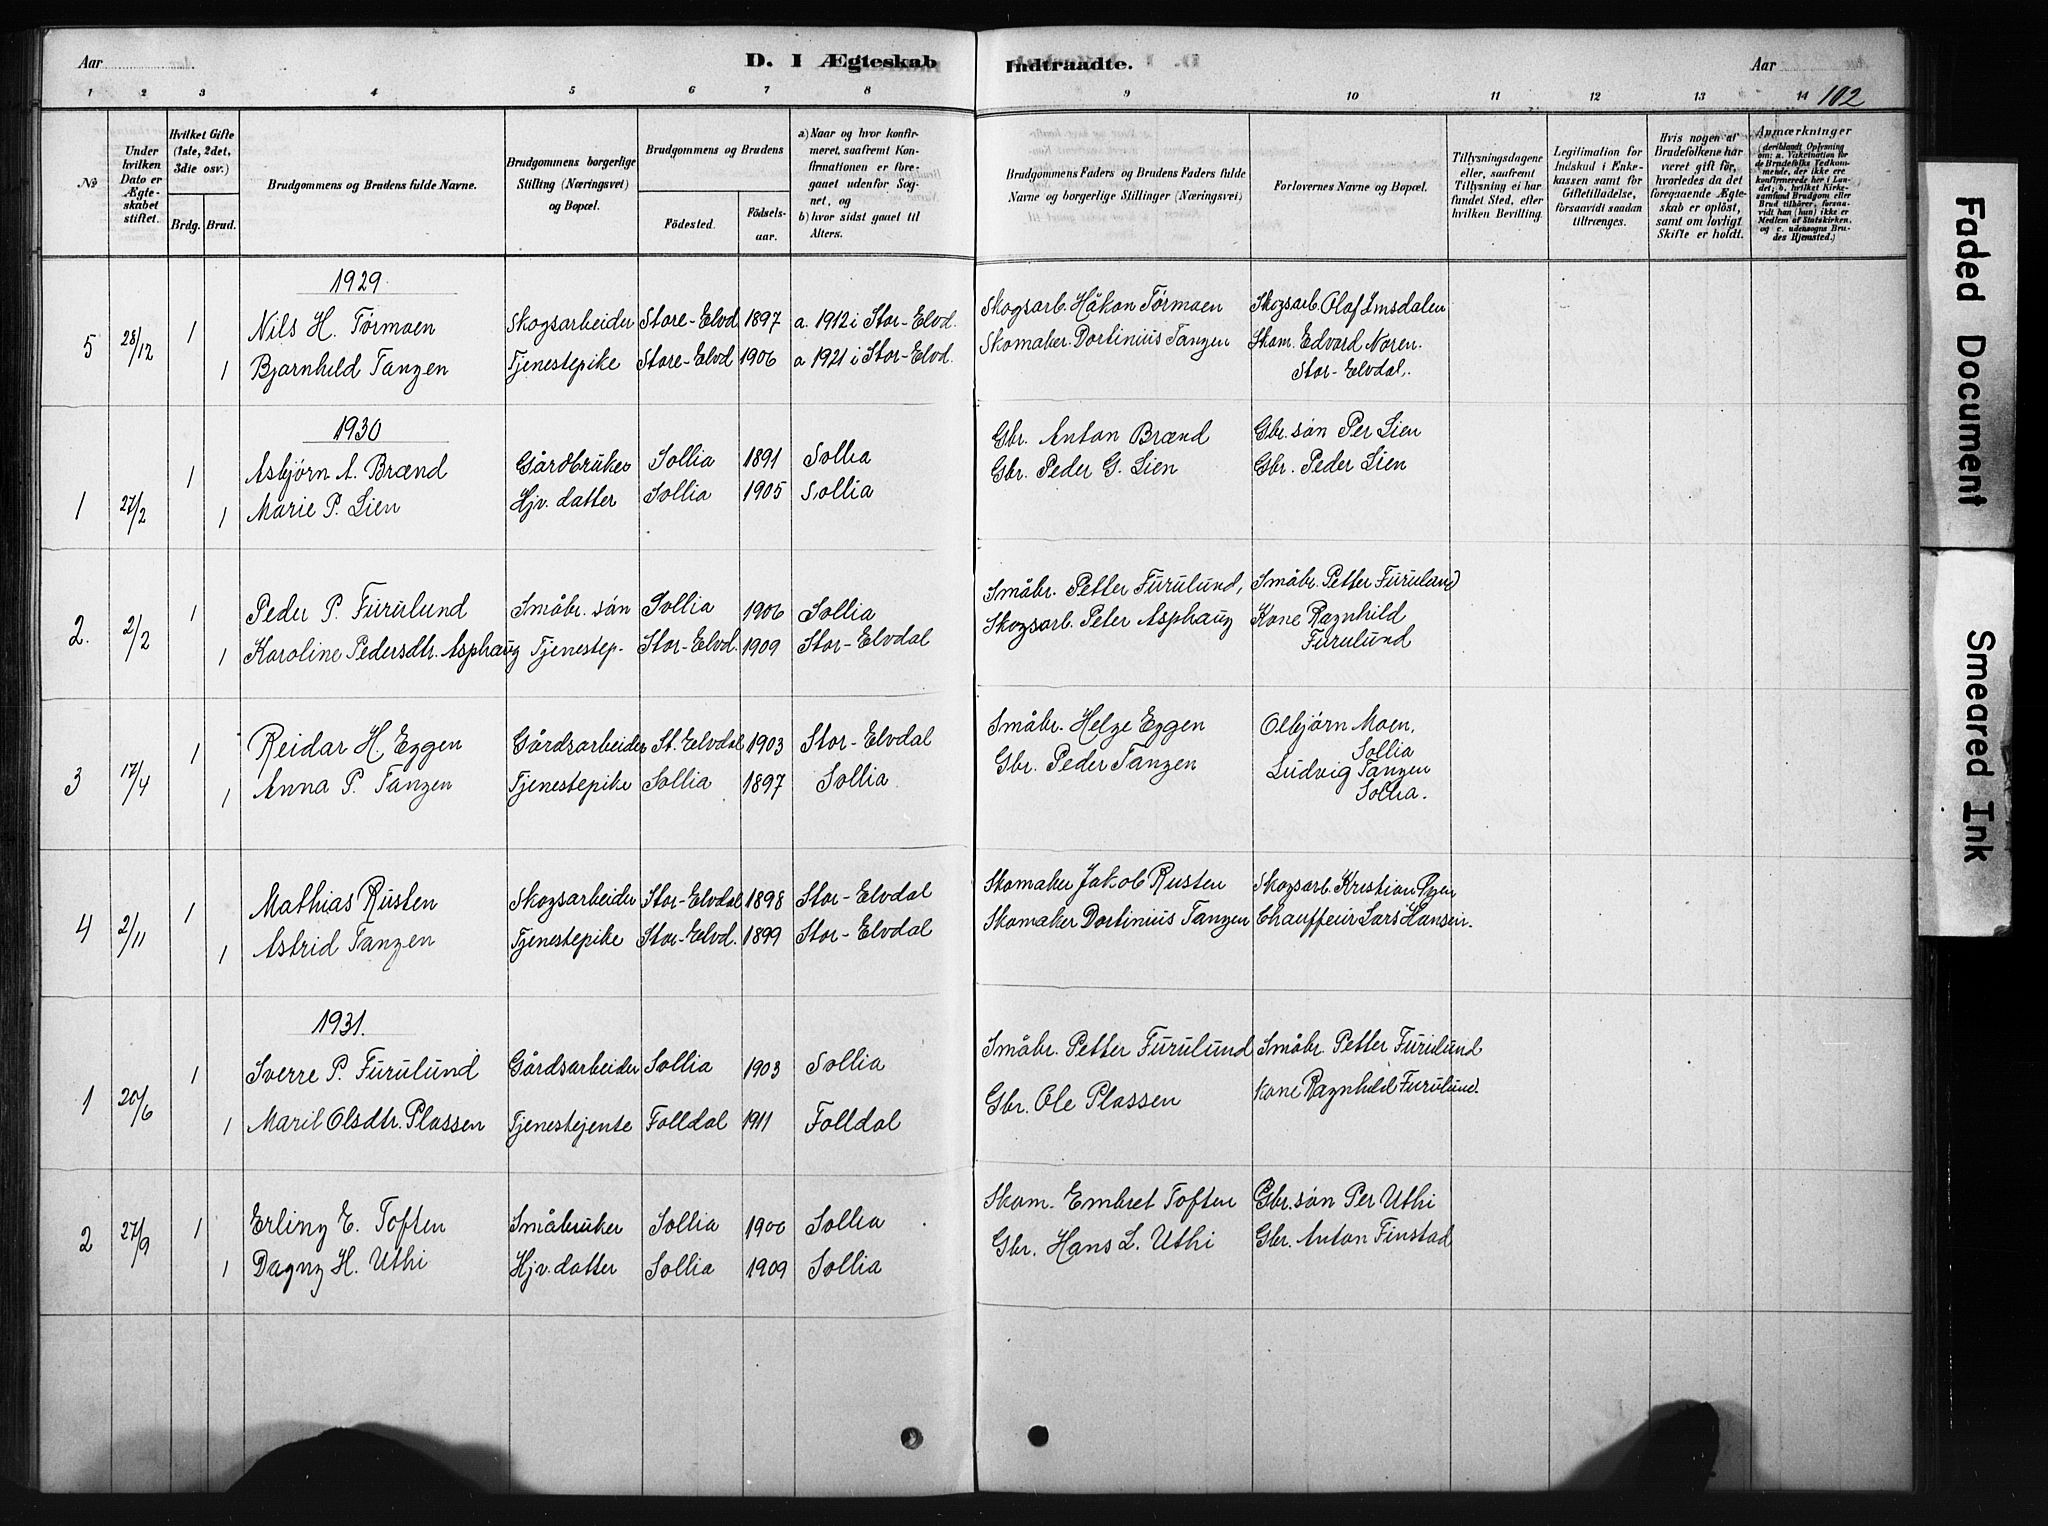 Aar
D. I Ægteskab
Indtraadte.
Aar
1 2 3 4 5 6 7 8 9 10 11 12 13 14
102
No
Under hvilken Dato er Ægteskabet stiftet.
Hvilket Gifte (1ste, 2det, 3die osv.)
Brdg. Brud.
Brudgommens og Brudens fulde Navne.
Brudgommens borgerlige Stilling (Næringsvei) og Bopæl.
Brudgommens og Brudens
Fødested.
Fødselsaar.
a) Naar og hvor konfirmeret, saafremt Konfirmationen er foregaaet udenfor Sognet, og
b) hvor sidst gaaet til Alters.
Brudgommens Faders og Brudens Faders fulde Navne og borgerlige Stillinger (Næringsvei)
Forlovernes Navne og Bopæl.
Tillysningsdagene eller, saafremt Tillysning ei har fundet Sted, efter hvilken Bevilling.
Legitimation for Indskud i Enkekassen samt for Giftetilladelse, forsaavidt saadan tiltrænges.
Hvis nogen af Brudefolkene har været gift før, hvorledes da det foregaaende Ægteskab er opløst, samt om lovligt Skifte er holdt.
Anmærkninger (deriblandt Oplysning om: a. Vakcination for de Brudefolks Vedkommende, der ikke ere konfirmerede her i Landet; b. hvilket Kirkesamfund Brudgom eller Brud tilhører, forsaavidt han (hun) ikke er Medlem af Statskirken, og c. udensogns Brudes Hjemsted.)
1929
5 28/12 1 Nils H. Tørmoen Skogsarbeider Store-Elvd 1897 a. 1912 i Stor-Elvd. Skogsarb. Håkon Tørmoen Skogsarb. Olaf Imsdalen
1 Bjarnhild Tangen Tjenestepike Store-Elvd 1906 a 1921 i Stor-Elvd. Skomaker Dortinius Tangen Skom. Edvard Noren.
Stor-Elvdal.
1930
1 27/2 1 Asbjørn A. Brænd Gårdbruker Sollia 1891 Sollia Gbr. Anton Brænd Gbr. søn Per Lien
1 Marie P. Lien Hjv. datter Sollia 1905 Sollia Gbr. Peder G. Lien Gbr. Peder Lien
2. 2/2 1 Peder P. Furulund Småbr. søn Sollia 1906 Sollia Småbr. Petter Furulund, Småbr. Petter Furulund
1 Karoline Pedersdtr. Asphaug Tjenestep. Stor-Elvd. 1909 Stor-Elvdal Skogsarb. Peter Asphaug Kone Ragnhild
Furulund
3 17/4 1 Reidar H Eggen Gårdsarbeider St. Elvdal 1903 Stor-Elvdal Småbr. Helge Eggen Olbjørn Moen,
Sollia
1 Anna P. Tangen Tjenestepike Sollia 1897 Sollia Gbr. Peder Tangen Ludvig Tangen
Sollia.
4 2/11 1 Mathias Rusten Skogsarbeider Stor-Elvdal 1898 Stor-Elvdal Skomaker Jakob Rusten Skogsarb. Kristian Ryen
1 Astrid Tangen Tjenestepike Stor-Elvd. 1899 Stor-Elvdal Skomaker Dortinius Tangen Chauffeur Lars Hansen.
1931.
1 20/6 1 Sverre P. Furulund Gårdsarbeider Sollia 1903 Sollia Småbr. Petter Furulund Småbr. Petter Furulund
1 Maril Olsdtr. Plassen Tjenestejente Folldal 1911 Folldal Gbr. Ole Plassen Kone Ragnhild Furulund.
2 27/9 1 Erling E. Toften Småbruker Sollia 1906 Sollia Skom. Embret Toften Gbr. søn Per Uthi
1 Dagny H. Uthi Hjv. datter Sollia 1909 Sollia Gbr. Hans L. Uthi Gbr. Anton Finstad
Faded Document
Smeared Ink